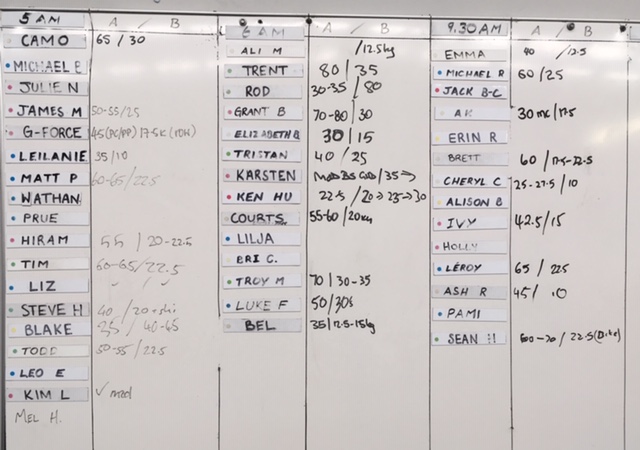 5 AM A / B
CAMO 65 / 30
MICHAEL B
JULIE N
JAMES M 50-55/25
G-FORCE 45(PC/PP) 17.5K (10H)
LEILANIE 35/10
MATT P 60-65/22.5
WATHAN
PRUE
HIRAM 55 / 20-22.5
TIM 60-65/22.5
LIZ
STEVE H 40 / 20+shi
BLAKE 35 / 40-45
TODD 50-55 / 22.5
LEO E
KIM L ✓ med
MEL H.
6 AM A / B
ALI M /12.5kg
TRENT 80 / 35
ROD 30-35 / 80
GRANT B 70-80 / 30
ELIZABETH B 30 / 15
TRISTAN 40 / 25
KARSTEN /35→
KEN HU 22.5 / 20→25→30
COURTS 55-60/20kg
LILJA
BRI C.
TROY M 70 / 30-35
LUKE F 50/30s
BEL 35/12.5-15kg
9.30AM A / B
EMMA 40 / 12.5
MICHAEL R 60/25
JACK B-C
AK 30 mk/17.5
ERIN R
BRETT 60 / 17.5-22.5
CHERYL C 25-27.5 / 10
ALISON B
IVY 42.5/15
HOLLY
LEROY 65 / 225
ASH R 45/ 10
PAMI
SEAN H 60-70 / 22.5